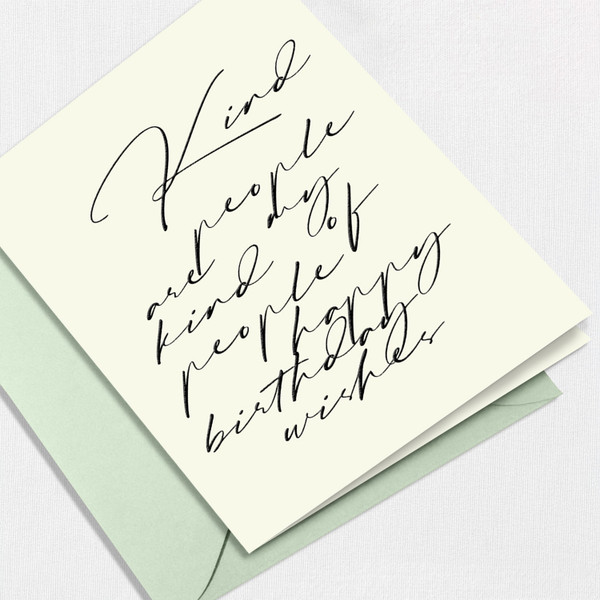 Kind
people
are my
kind of
people
happy
birthday
wishes